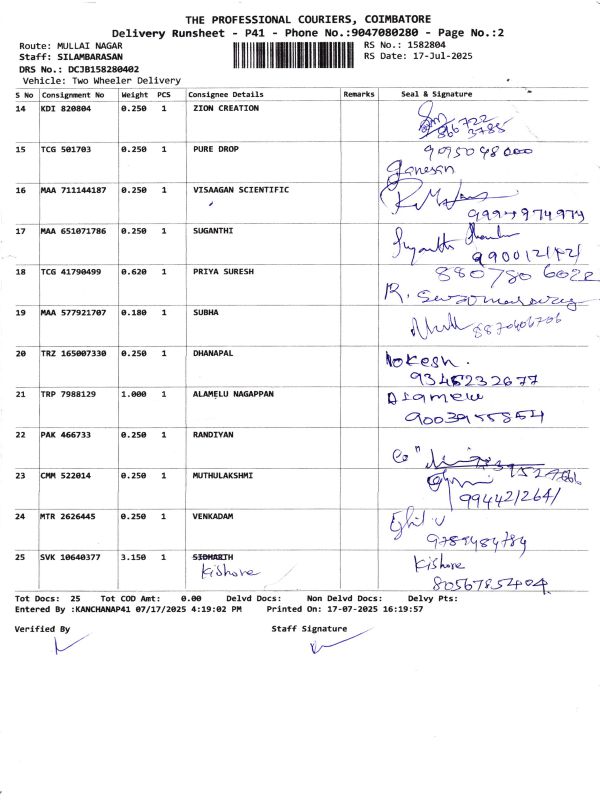 THE PROFESSIONAL COURIERS, COIMBATORE
Delivery Runsheet - P41 - Phone No.:9047080280 - Page No.:2
Route: MULLAI NAGAR RS No.: 1582804
Staff: SILAMBARASAN RS Date: 17-Jul-2025
DRS No.: DCJB158280402
Vehicle: Two Wheeler Delivery
S No Consignment No Weight PCS Consignee Details Remarks Seal & Signature
14 KDI 820804 0.250 1 ZION CREATION
15 TCG 501703 0.250 1 PURE DROP 9095048000
Ganesan
16 MAA 711144187 0.250 1 VISAAGAN SCIENTIFIC
9994974979
17 MAA 651071786 0.250 1 SUGANTHI
18 TCG 41790499 0.620 1 PRIYA SURESH 8807806022
R.
19 MAA 577921707 0.180 1 SUBHA
8870406706
20 TRZ 165007330 0.250 1 DHANAPAL Lokesh.
9345232677
21 TRP 7988129 1.000 1 ALAMELU NAGAPPAN Alamelu
9003955854
22 PAK 466733 0.250 1 RANDIYAN
23 CMM 522014 0.250 1 MUTHULAKSHMI
9944212641
24 MTR 2626445 0.250 1 VENKADAM
9789484784
25 SVK 10640377 3.150 1 SIDHARTH Kishore
Kishore 8056785404
Tot Docs: 25 Tot COD Amt: 0.00 Delvd Docs: Non Delvd Docs: Delvy Pts:
Entered By :KANCHANAP41 07/17/2025 4:19:02 PM Printed On: 17-07-2025 16:19:57
Verified By Staff Signature